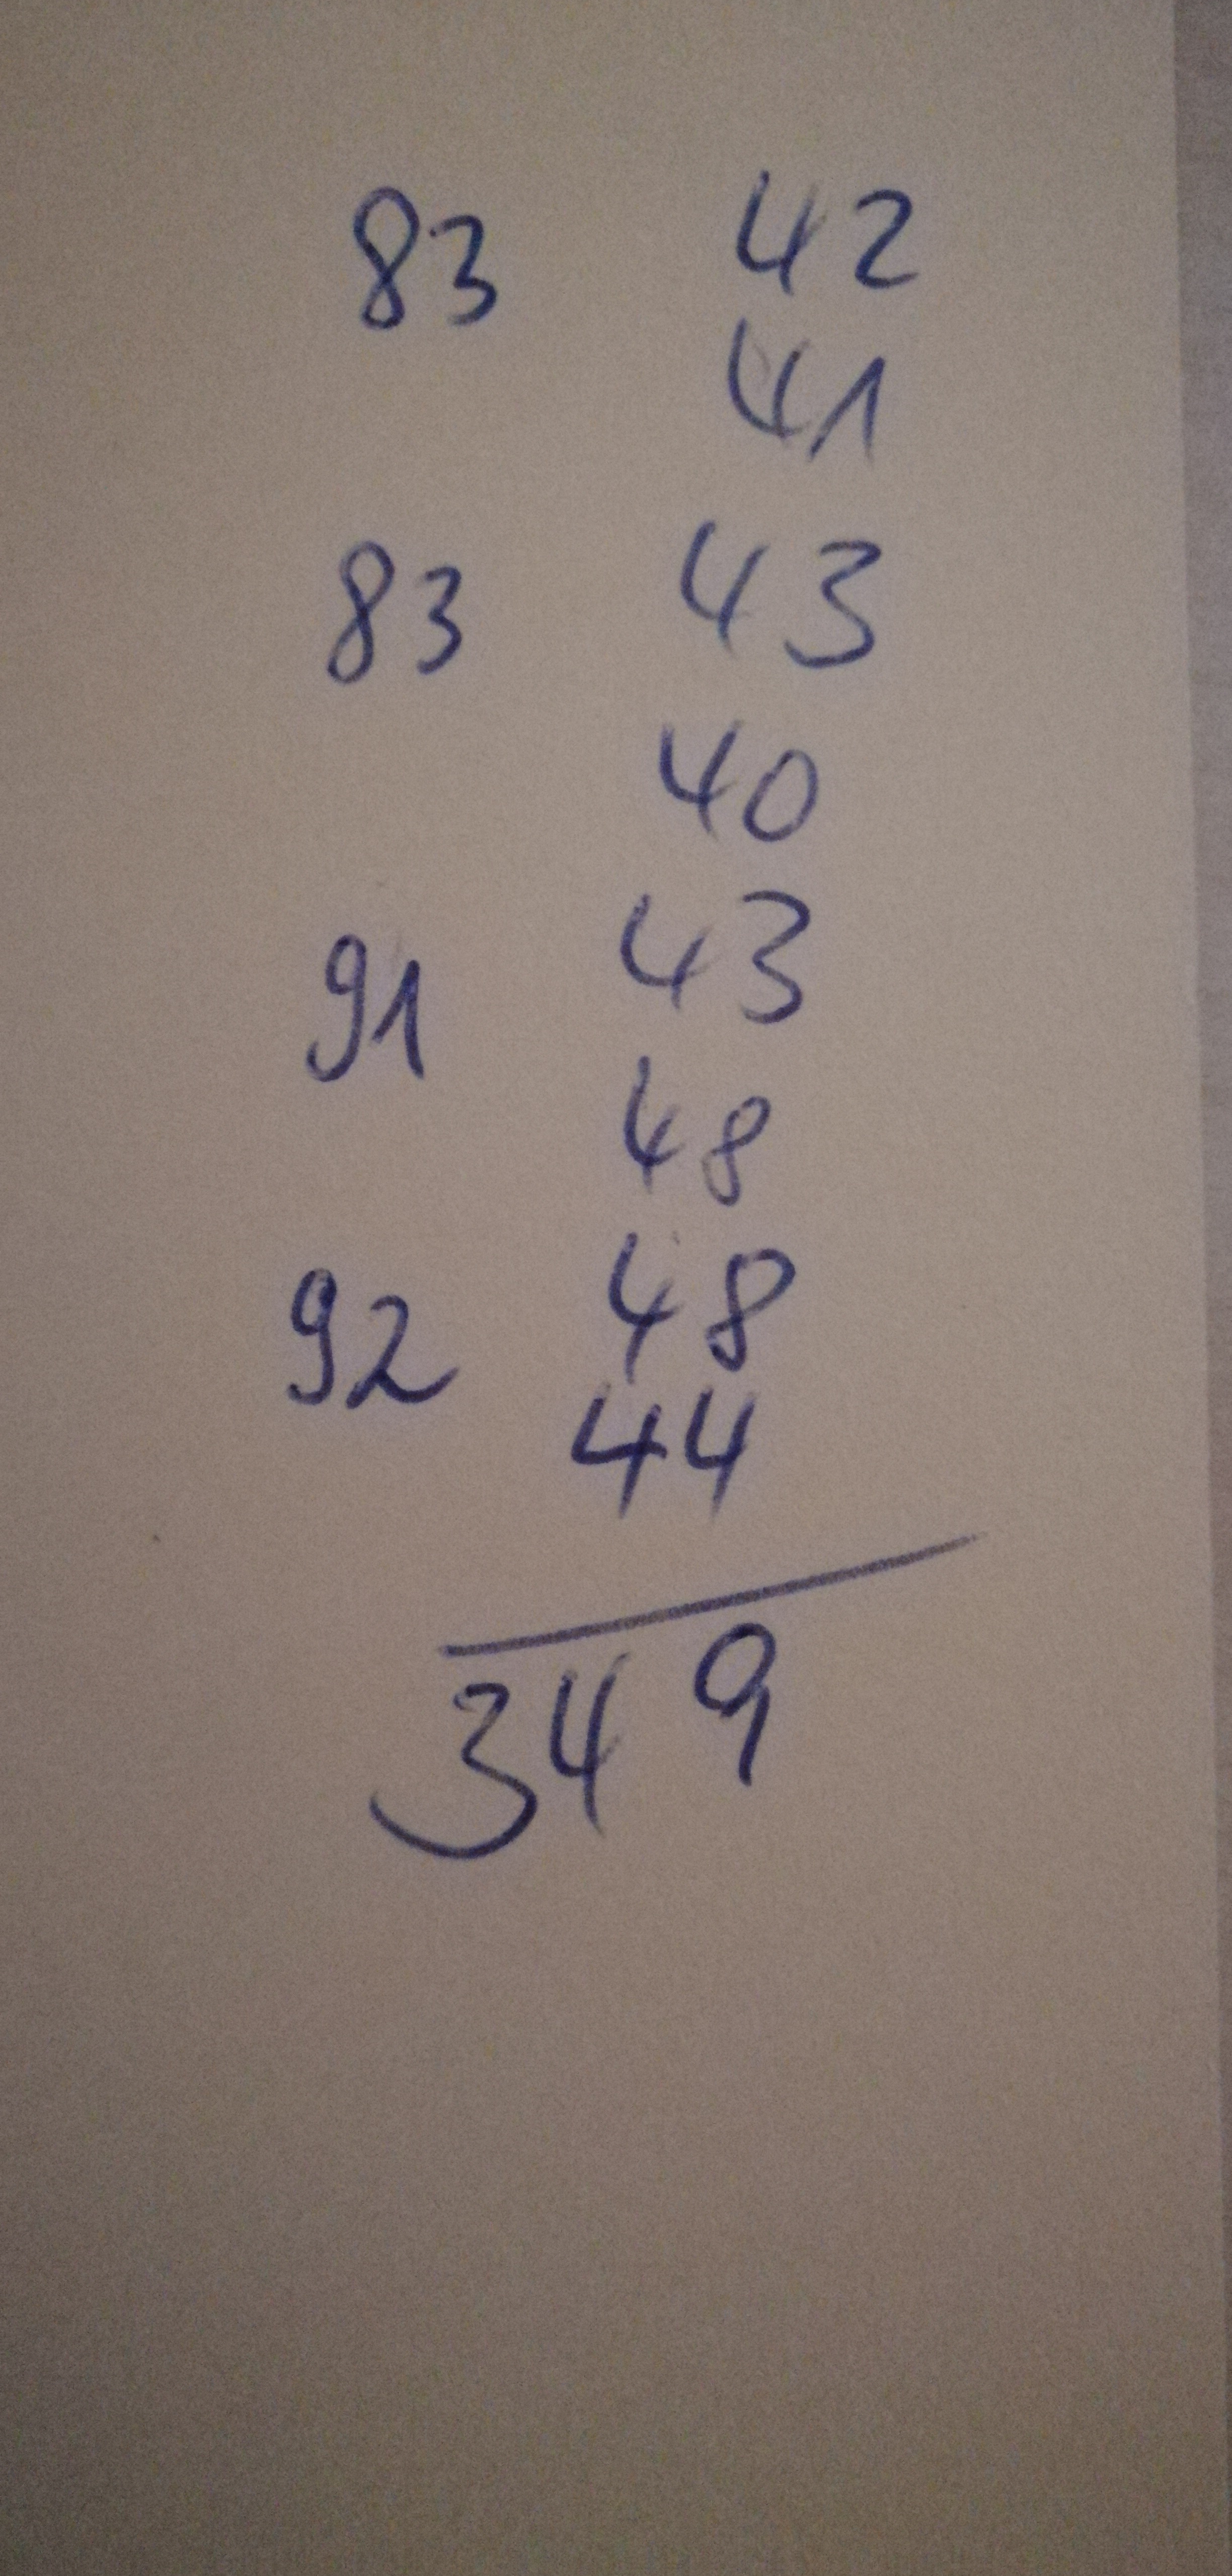 83 42
41
83 43
40
91 43
48
92 48
44
349